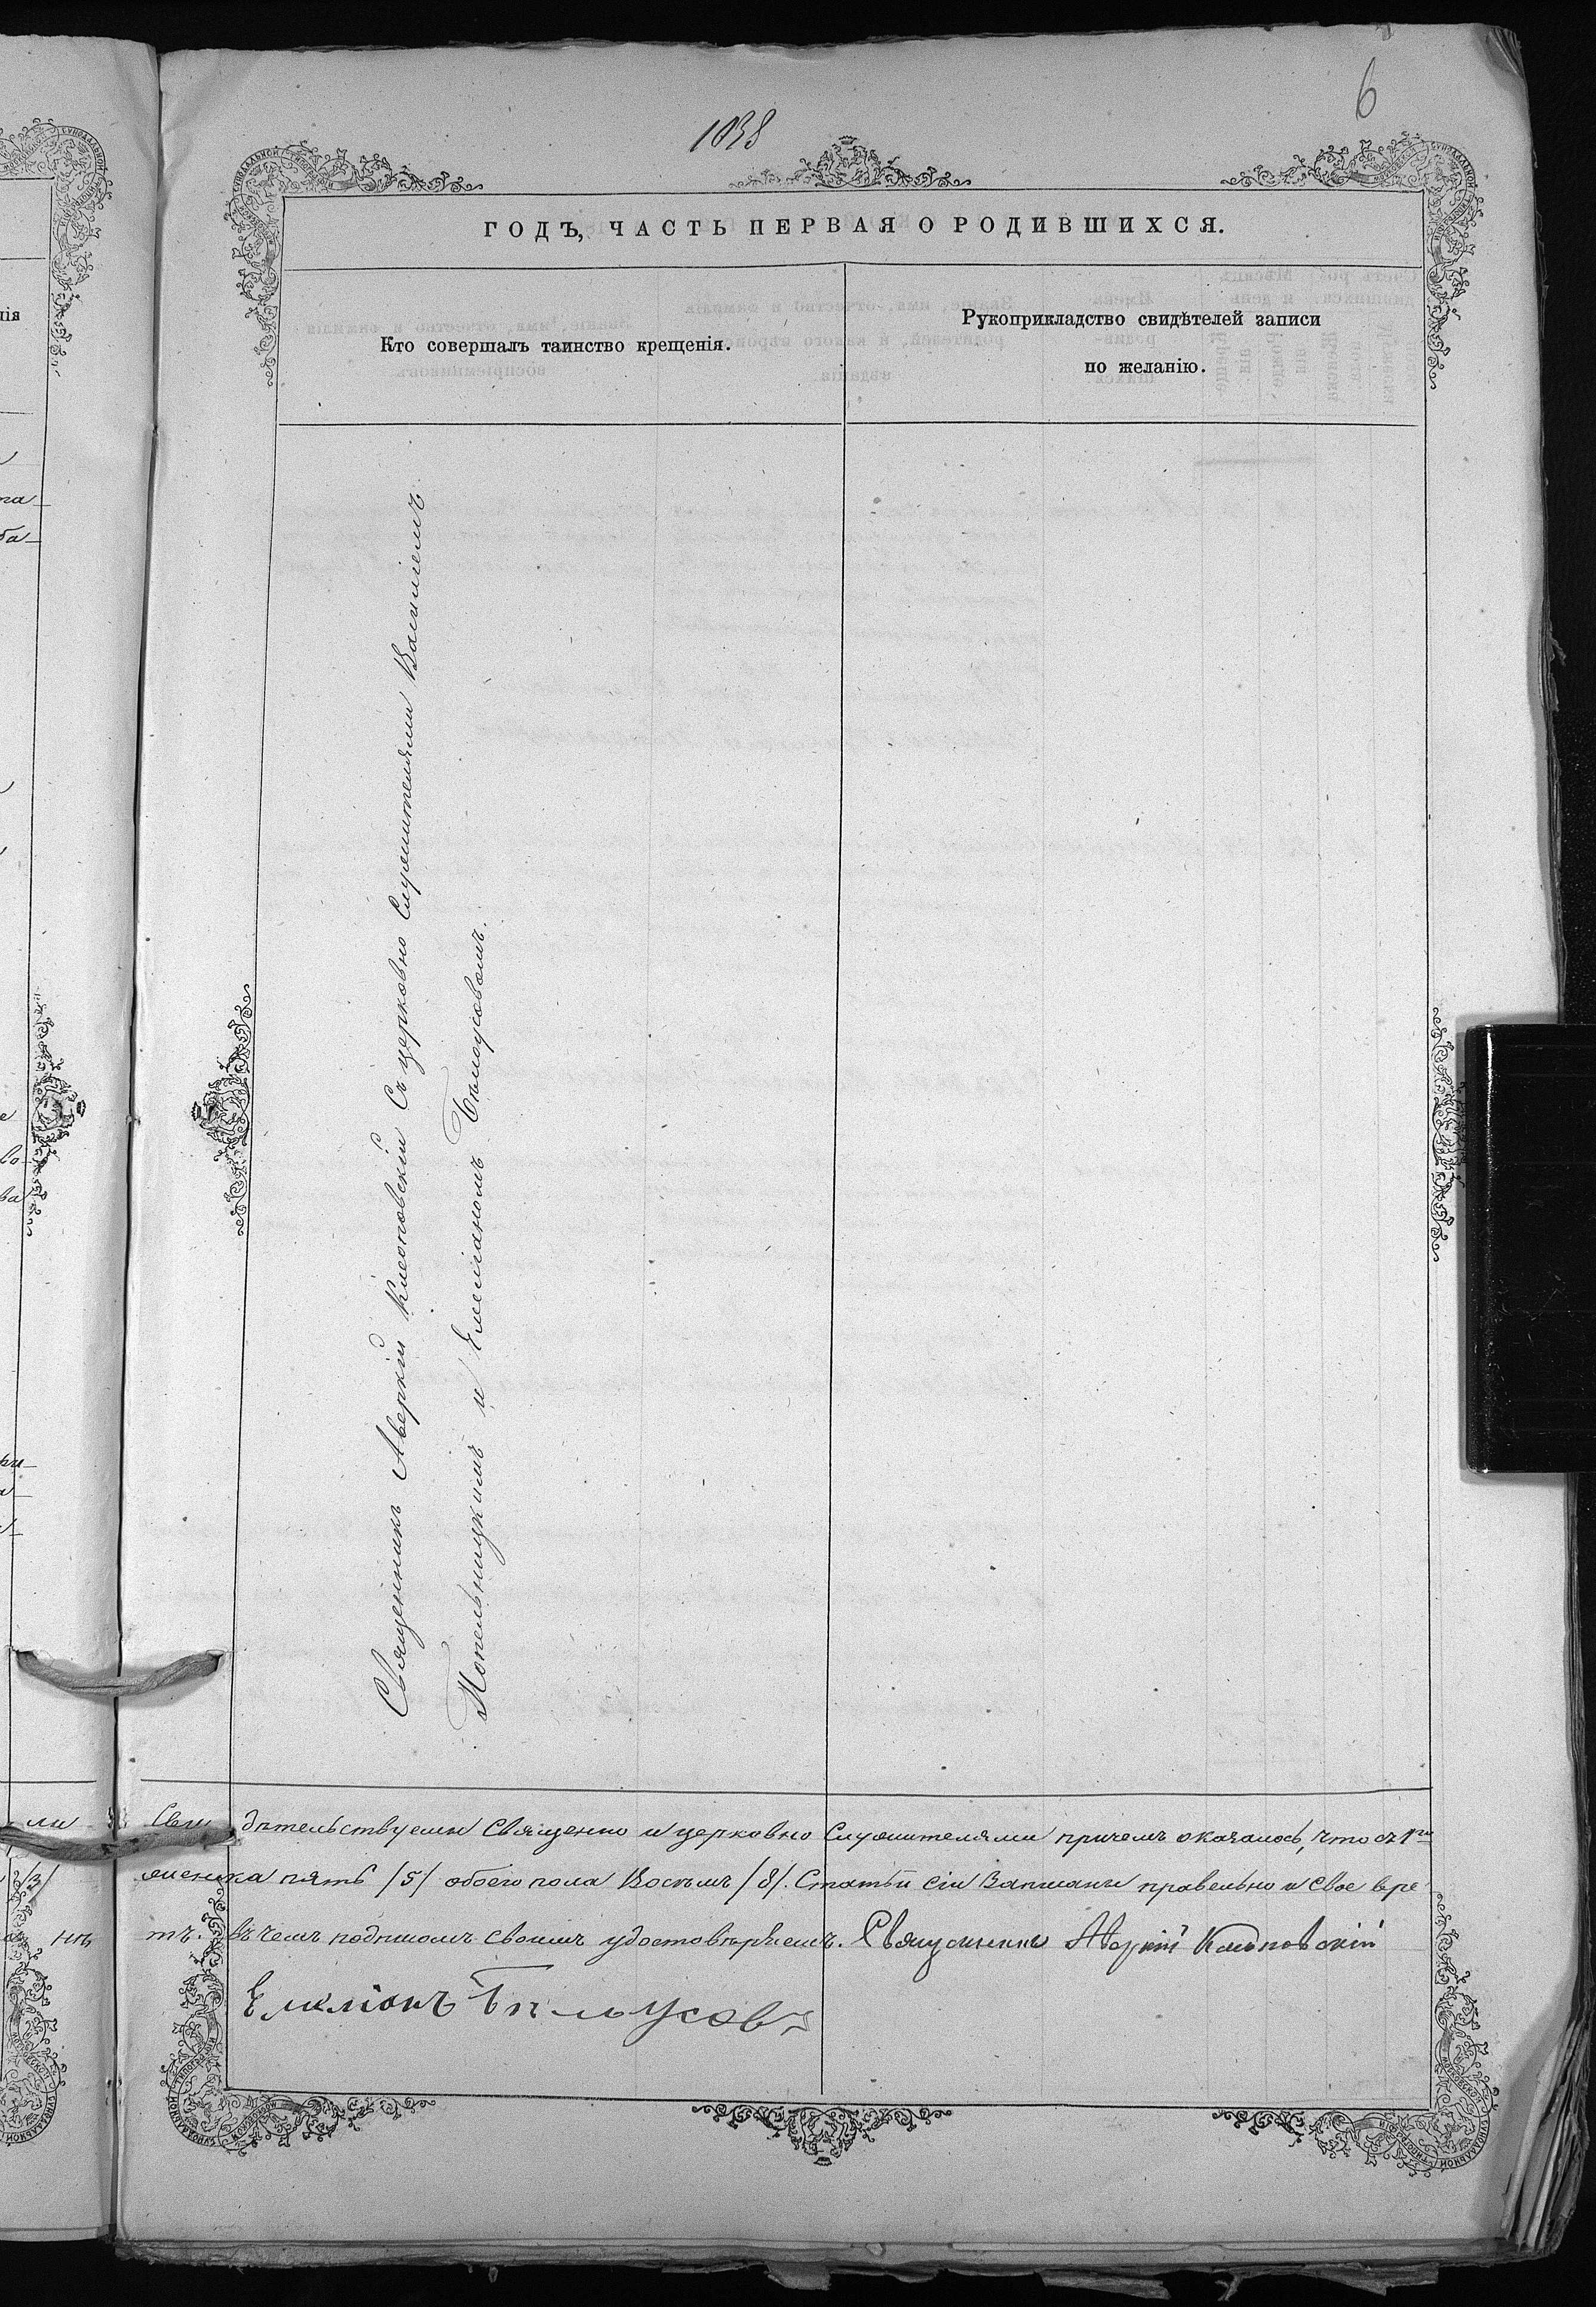 6
1038
ГОДЪ, ЧАСТЬ ПЕРВАЯ О РОДИВШИХСЯ.
Кто совершалъ таинство крещенія.
Рукоприкладство свидѣтелей записи
по желанію.
Священникъ Аверкій Клеоповскій Съ церковно Служителями Василіемъ
Попельницкимъ и Емеліаномъ Бѣлоусовомъ.
Сви дѣтельствуемы Священно и церковно Служителями причемъ оказалось, что съ 1го
женска пять /5/ обоего пола Восемь /8/. Статьи сіи Записаны правельно и Свое вре
въ чемъ подписомъ своимъ удостовѣряемъ. Священникъ Аверкій Клеоповскій
Емеліанъ Бѣлоусовъ